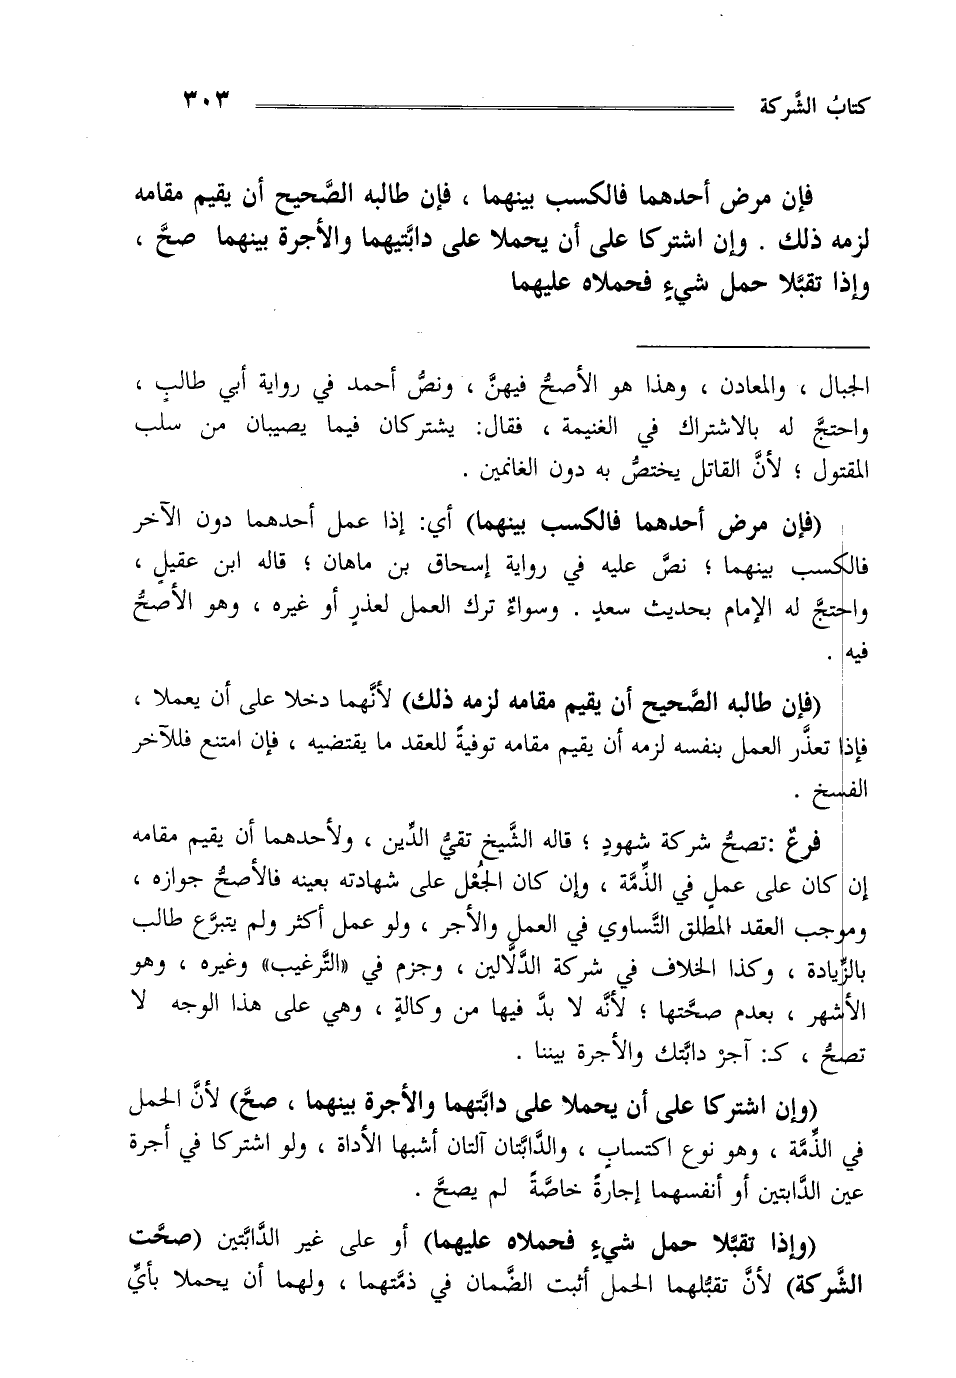 كتابُ الشَّركة ٣٠٣
فإن مرض أحدهما فالكسب بينهما ، فإن طالبه الصَّحيح أن يقيم مقامه
لزمه ذلك . وإن اشتركا على أن يحملا على دابَّتيهما والأجرة بينهما صحَّ ،
وإذا تقبَّلا حمل شيءٍ فحملاه عليهما
الجبال ، والمعادن ، وهذا هو الأصحُّ فيهنَّ ، ونصُّ أحمد في رواية أبي طالبٍ ،
واحتجَّ له بالاشتراك في الغنيمة ، فقال: يشتركان فيما يصيبان من سلب
المقتول ؛ لأنَّ القاتل يختصُّ به دون الغانمين .
(فإن مرض أحدهما فالكسب بينهما) أي: إذا عمل أحدهما دون الآخر
فالكسب بينهما ؛ نصَّ عليه في رواية إسحاق بن ماهان ؛ قاله ابن عقيلٍ ،
واحتجَّ له الإمام بحديث سعدٍ . وسواءٌ ترك العمل لعذرٍ أو غيره ، وهو الأصحُّ
فيه .
(فإن طالبه الصَّحيح أن يقيم مقامه لزمه ذلك) لأنَّهما دخلا على أن يعملا ،
فإذا تعذَّر العمل بنفسه لزمه أن يقيم مقامه توفيةً للعقد ما يقتضيه ، فإن امتنع فللآخر
الفسخ .
فرعٌ :تصحُّ شركة شهودٍ ؛ قاله الشَّيخ تقيُّ الدِّين ، ولأحدهما أن يقيم مقامه
إن كان على عملٍ في الذِّمَّة ، وإن كان الجُعْل على شهادته بعينه فالأصحُّ جوازه ،
وموجب العقد المطلق التَّساوي في العمل والأجر ، ولو عمل أكثر ولم يتبرَّع طالب
بالزِّيادة ، وكذا الخلاف في شركة الدَّلَّالين ، وجزم في «التَّرغيب» وغيره ، وهو
الأشهر ، بعدم صحَّتها ؛ لأنَّه لا بدَّ فيها من وكالةٍ ، وهي على هذا الوجه لا
تصحُّ ، كـ: آجرْ دابَّتك والأجرة بيننا .
(وإن اشتركا على أن يحملا على دابَّتهما والأجرة بينهما ، صحَّ) لأنَّ الحمل
في الذِّمَّة ، وهو نوع اكتسابٍ ، والدَّابَّتان آلتان أشبها الأداة ، ولو اشتركا في أجرة
عين الدَّابتين أو أنفسهما إجارةً خاصَّةً لم يصحَّ .
(وإذا تقبَّلا حمل شيءٍ فحملاه عليهما) أو على غير الدَّابَّتين (صحَّت
الشَّركة) لأنَّ تقبُّلهما الحمل أثبت الضَّمان في ذمَّتهما ، ولهما أن يحملا بأيِّ